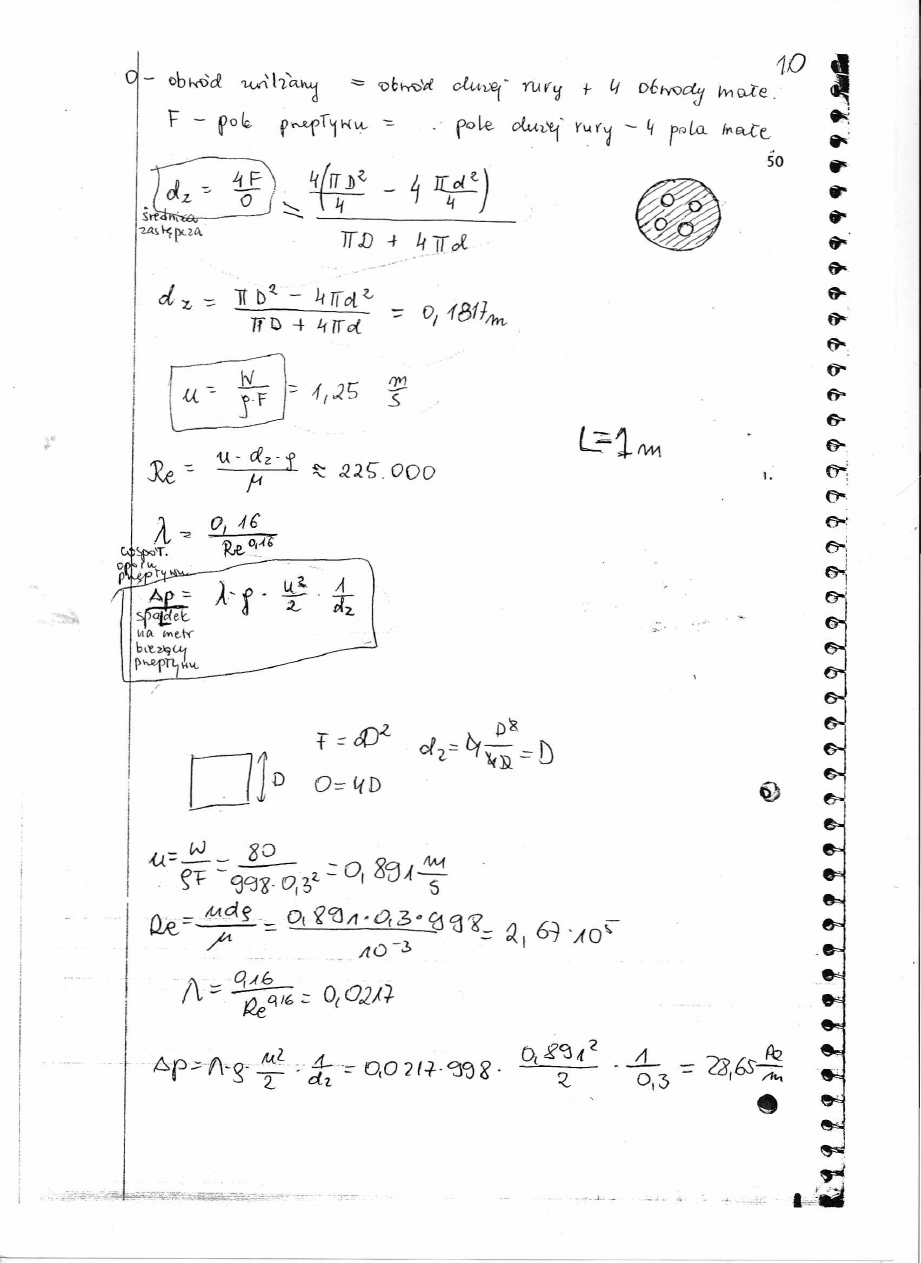 10
O - obwód zwilżany = obwód dużej rury + 4 obwody małe.
F - pole przepływu = . pole dużej rury - 4 pola małe
50
d_z = 4F/O = 4(πD²/4 - 4 πd²/4) / (πD + 4πd)
średnica
zastępcza
d_z = (πD² - 4πd²) / (πD + 4πd) = 0,1817 m
u = W/(ρ·F) = 1,25 m/s
L=1 m
Re = u·d_z·ρ/μ ≈ 225.000
1.
λ = 0,16/Re^0,16
współ.
oporu
przepływu
Δp = λ·ρ·u²/2·1/d_z
spadek
na metr
bieżący
przepływu
F = D² d_z = 4 D²/4D = D
D
O = 4D
u = W/ρF = 80/(998·0,3²) = 0,891 m/s
Re = udρ/μ = 0,891·0,3·998/10⁻³ = 2,67·10⁵
λ = 0,16/Re^0,16 = 0,0217
Δp = λ·ρ·u²/2·1/d_z = 0,0217·998·0,891²/2·1/0,3 = 28,65 Pa/m